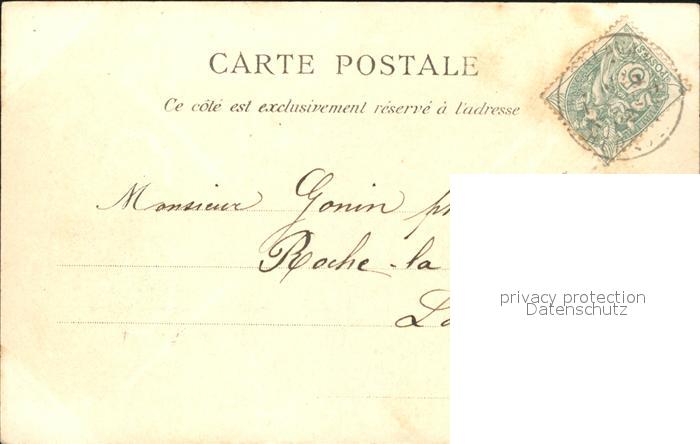 CARTE POSTALE
Ce côté est exclusivement réservé à l'adresse
Monsieur Gonin
Roche-la
privacy protection
Datenschutz